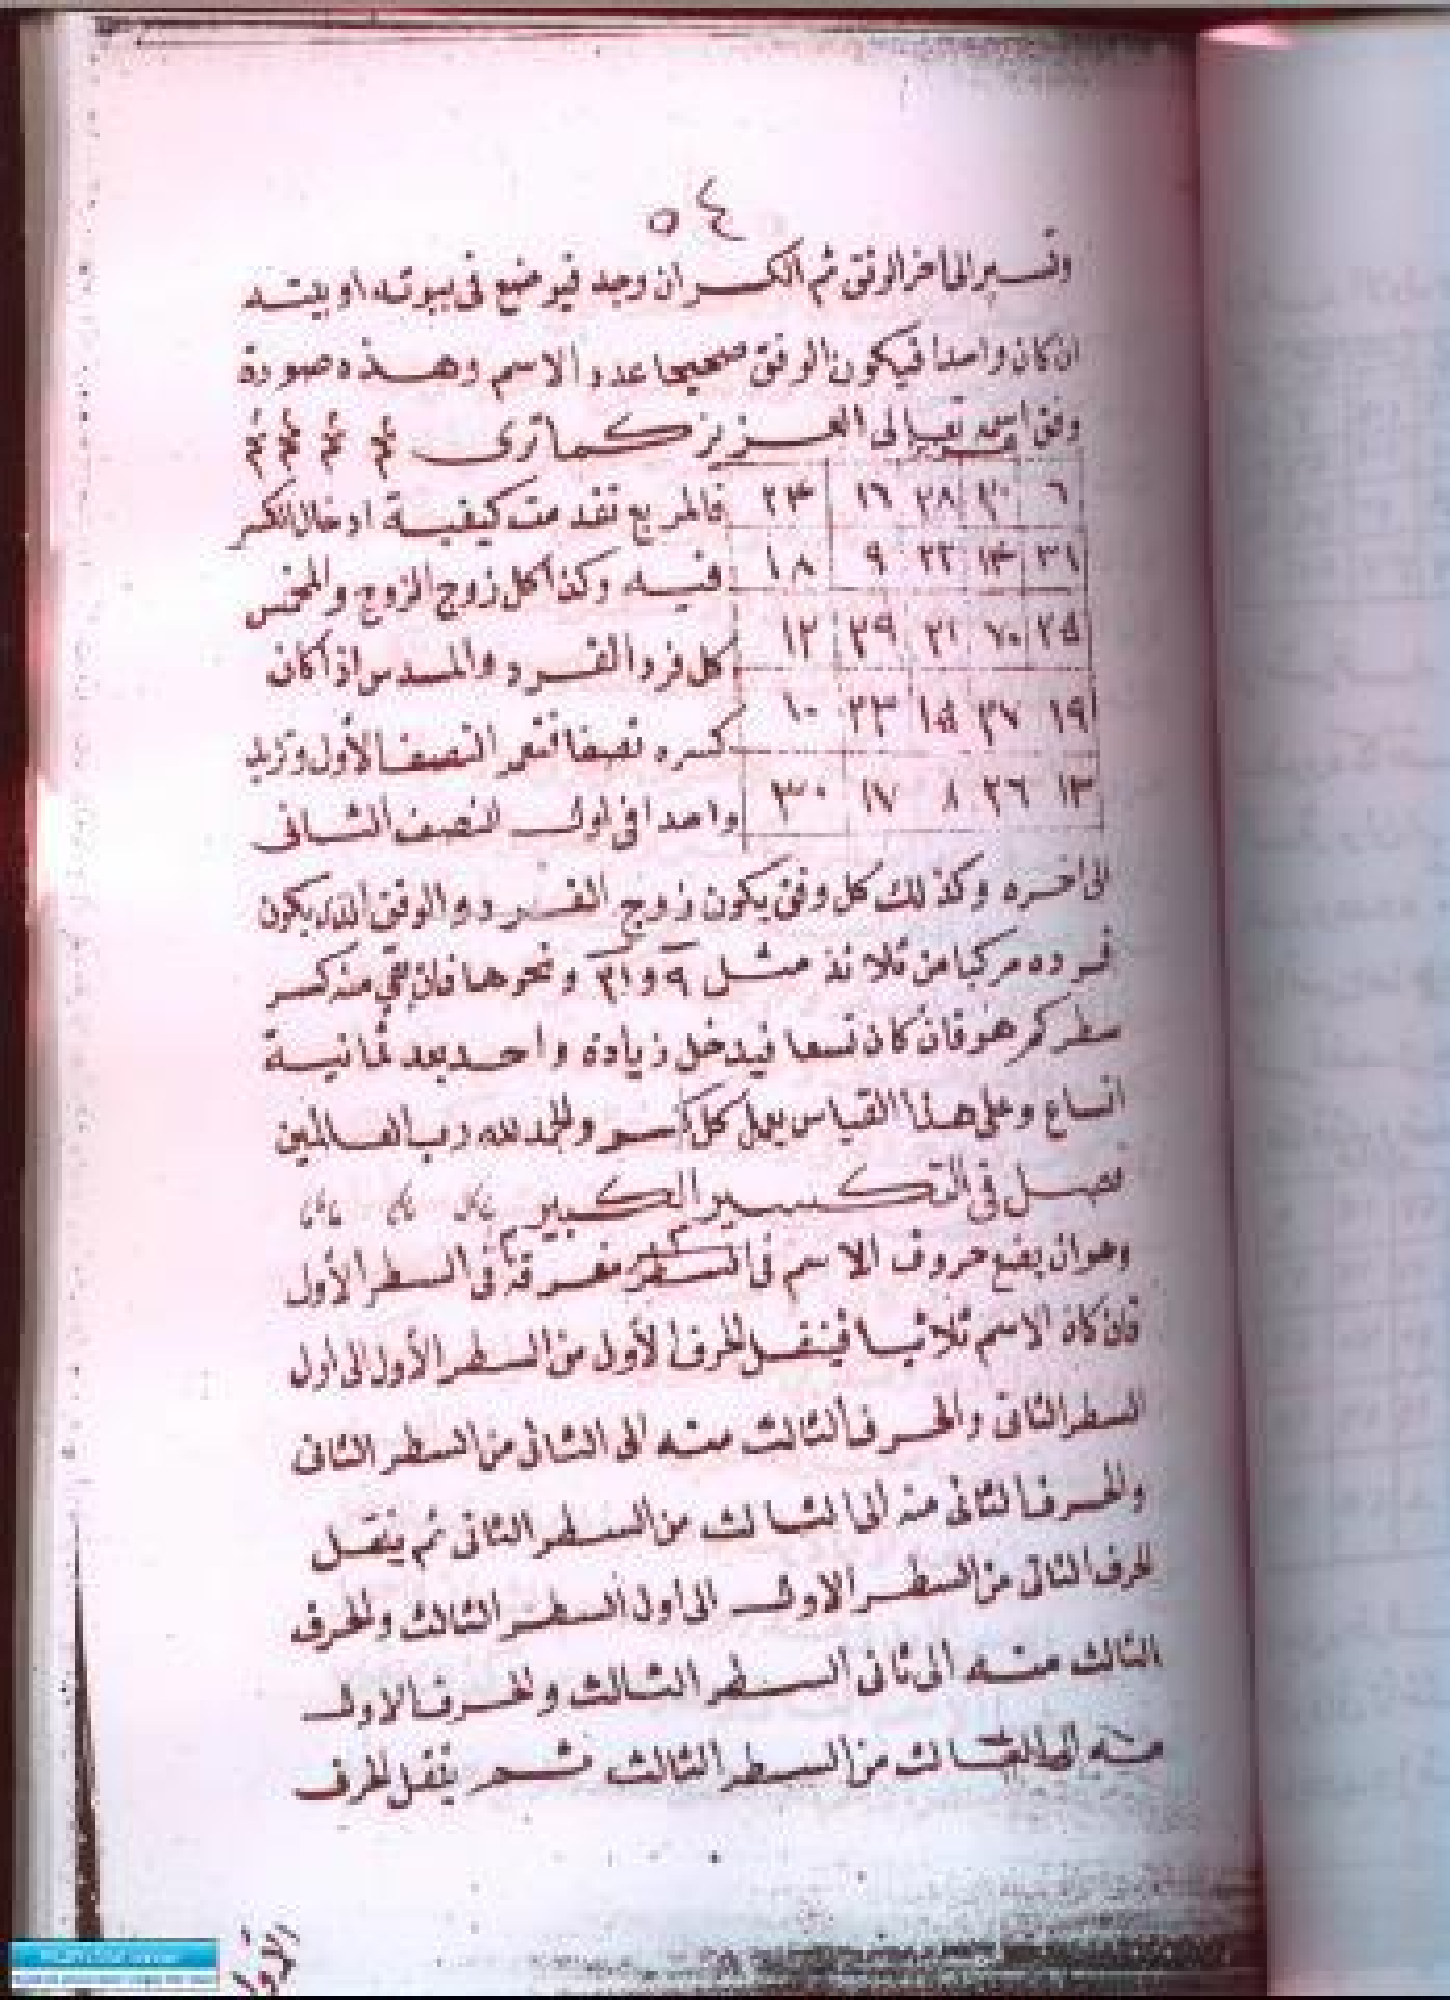 ٥٤
وتسير الى اخر الوفق ثم الكسر ان وجد فيوضع فى بيوته او بيته
ان كان واحدا فيكون الوفق صحيحا عدد الاسم وهذه صورة
وفق اسمه تعالى العزيز كما ترى
٦ ٢٨ ١٦ ٢٤
فالمربع تقدمت كيفية ادخال الكسر
٣١ ١٤ ٢٢ ٩ ١٨
فيه وكذا كل زوج الزوج والمخمس
٢٥ ٢١ ٢٩ ١٢
كل فرد الفرد والمسدس اذا كان
١٩ ٢٧ ١٥ ٢٣ ١٠
كسره نصفا فتعمر النصف الأول وتزيد
١٣ ٢٦ ٨ ١٧ ٣٠
واحدا فى اول النصف الثانى
الى اخره وكذلك كل وفق يكون زوج الفرد والوفق الذى يكون
فرده مركبا من ثلاثة مثل ٩ و ٢١ ونحوها فان بقى منه كسر
سطر كم هو فان كان تسعا فيدخل زيادة واحد بعد ثمانية
اتساع وعلى هذا القياس يعمل كل كسر والحمد لله رب العالمين
فصل فى التكسير الكبير
وهو ان يضع حروف الاسم فى السطر مفرقة فى السطر الأول
فان كان الاسم ثلاثيا فينقل الحرف الأول من السطر الأول الى اول
السطر الثانى والحرف الثالث منه الى الثانى من السطر الثانى
والحرف الثانى منه الى الثالث من السطر الثانى ثم ينقل
الحرف الثانى من السطر الاول الى اول السطر الثالث والحرف
الثالث منه الى ثانى السطر الثالث والحرف الاول
منه الى الثالث من السطر الثالث ثم ينقل الحرف
الاول